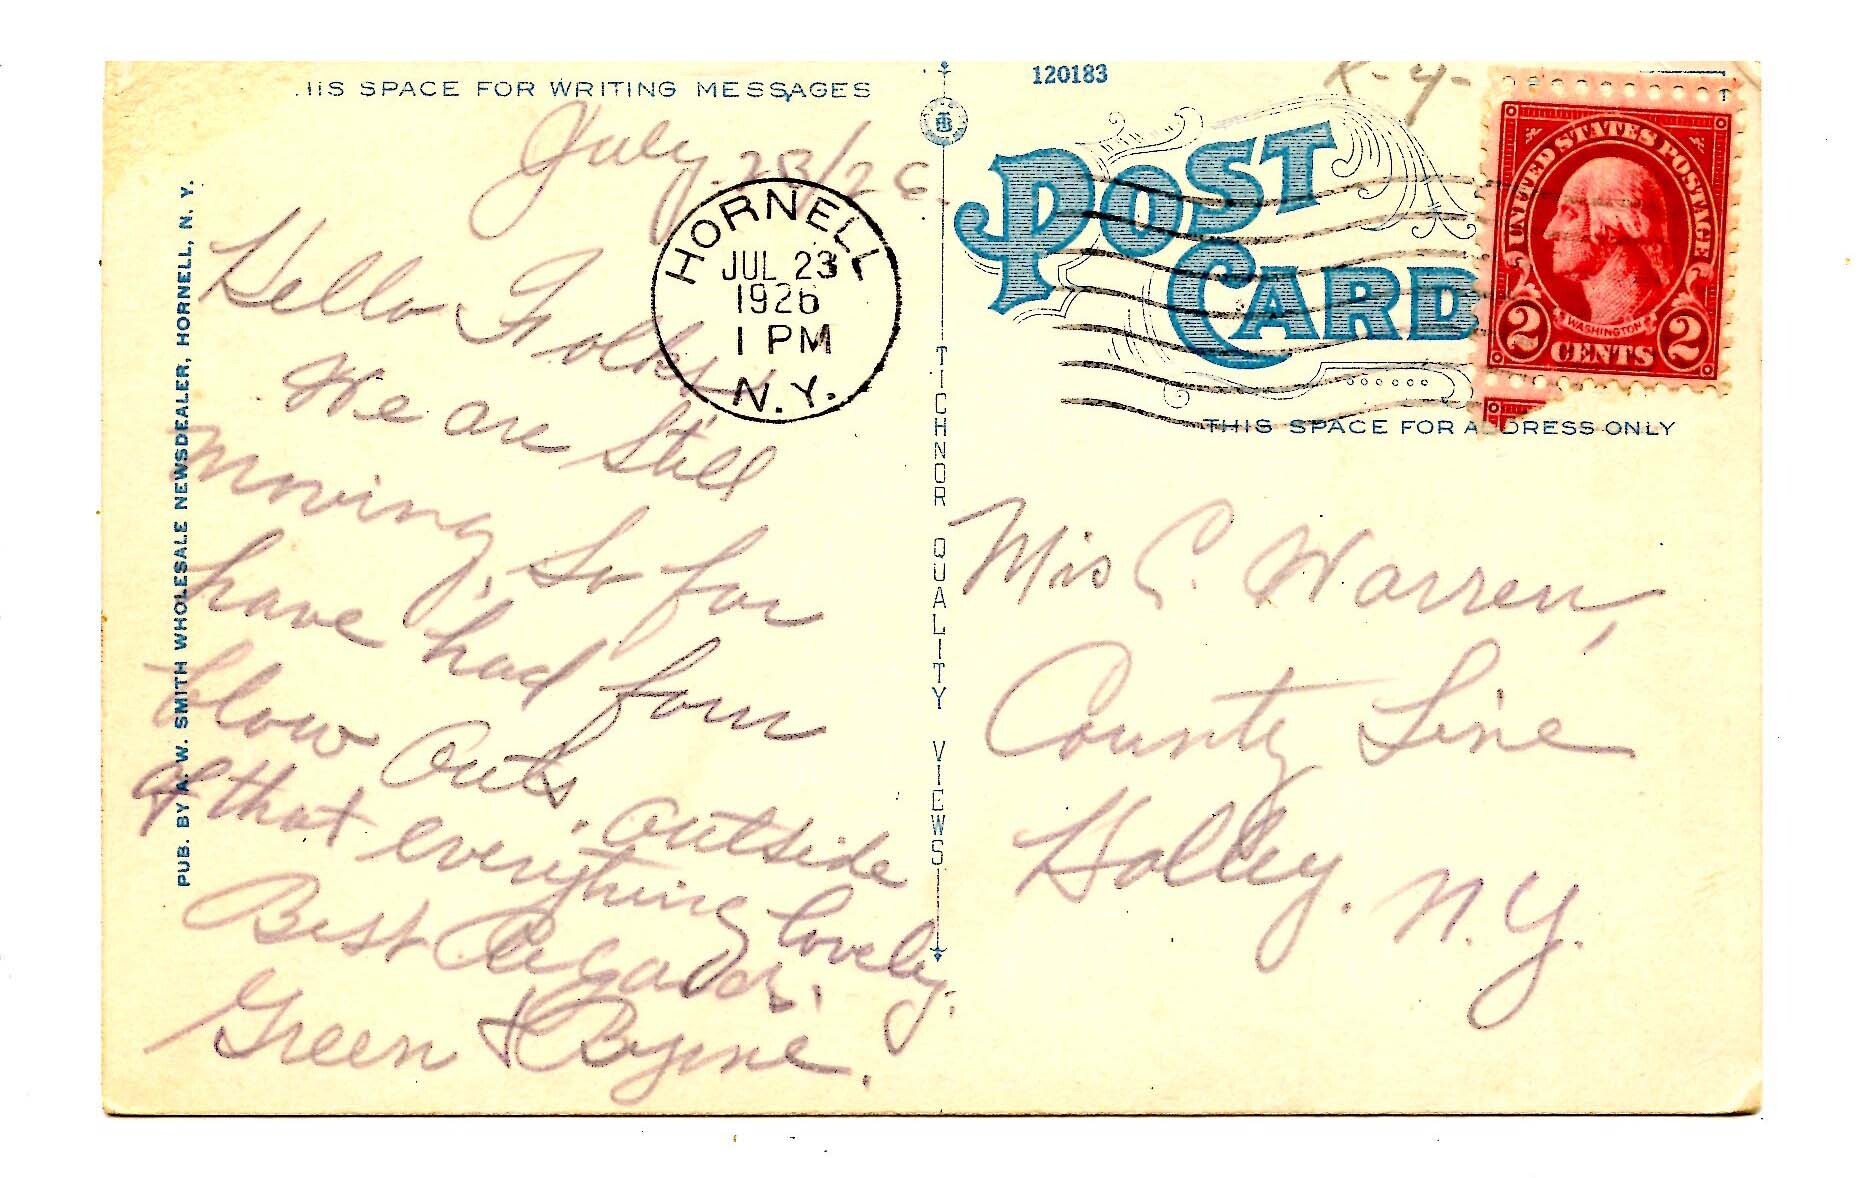 .IIS SPACE FOR WRITING MESSAGES
July 23/26
Hello Folks
We are still
moving, so far
have had four
blow outs. outside
of that everything lovely.
Best Regards.
Green & Byrne.
PUB. BY A. W. SMITH WHOLESALE NEWSDEALER, HORNELL, N. Y.
HORNELL
JUL 23
1926
1 PM
N.Y.
TICHNOR QUALITY VIEWS
120183
POST
CARD
UNITED STATES POSTAGE
WASHINGTON
2 CENTS 2
THIS SPACE FOR ADDRESS ONLY
Mrs C. Warren,
County Line
Holley. N.Y.